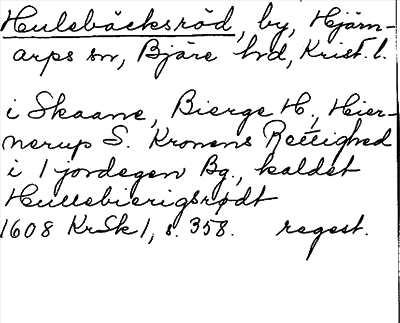 Hulsbäcksröd, by, Hjärn-
arps sn, Bjäre hd, Krist. l.
i Skaane, Bierge H., Hier-
nerup S. Kronens Rettighed
i 1 jordegen Bg., kaldet
Hullebierigsrødt
1608 KrSk 1, s. 358. regest.